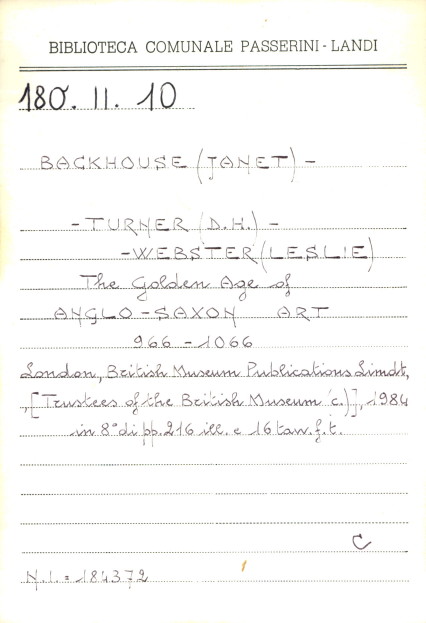 BIBLIOTECA COMUNALE PASSERINI - LANDI
180. II. 10
BACKHOUSE (JANET) -
- TURNER (D.H.) -
- WEBSTER (LESLIE)
The Golden Age of
ANGLO-SAXON ART
966 - 1066
London, British Museum Publications Limdt,
, [Trustees of the British Museum (c.)], 1984
in 8° di pp. 216 ill. e 16 tav. f. t.
C
N.I. = 184372
1